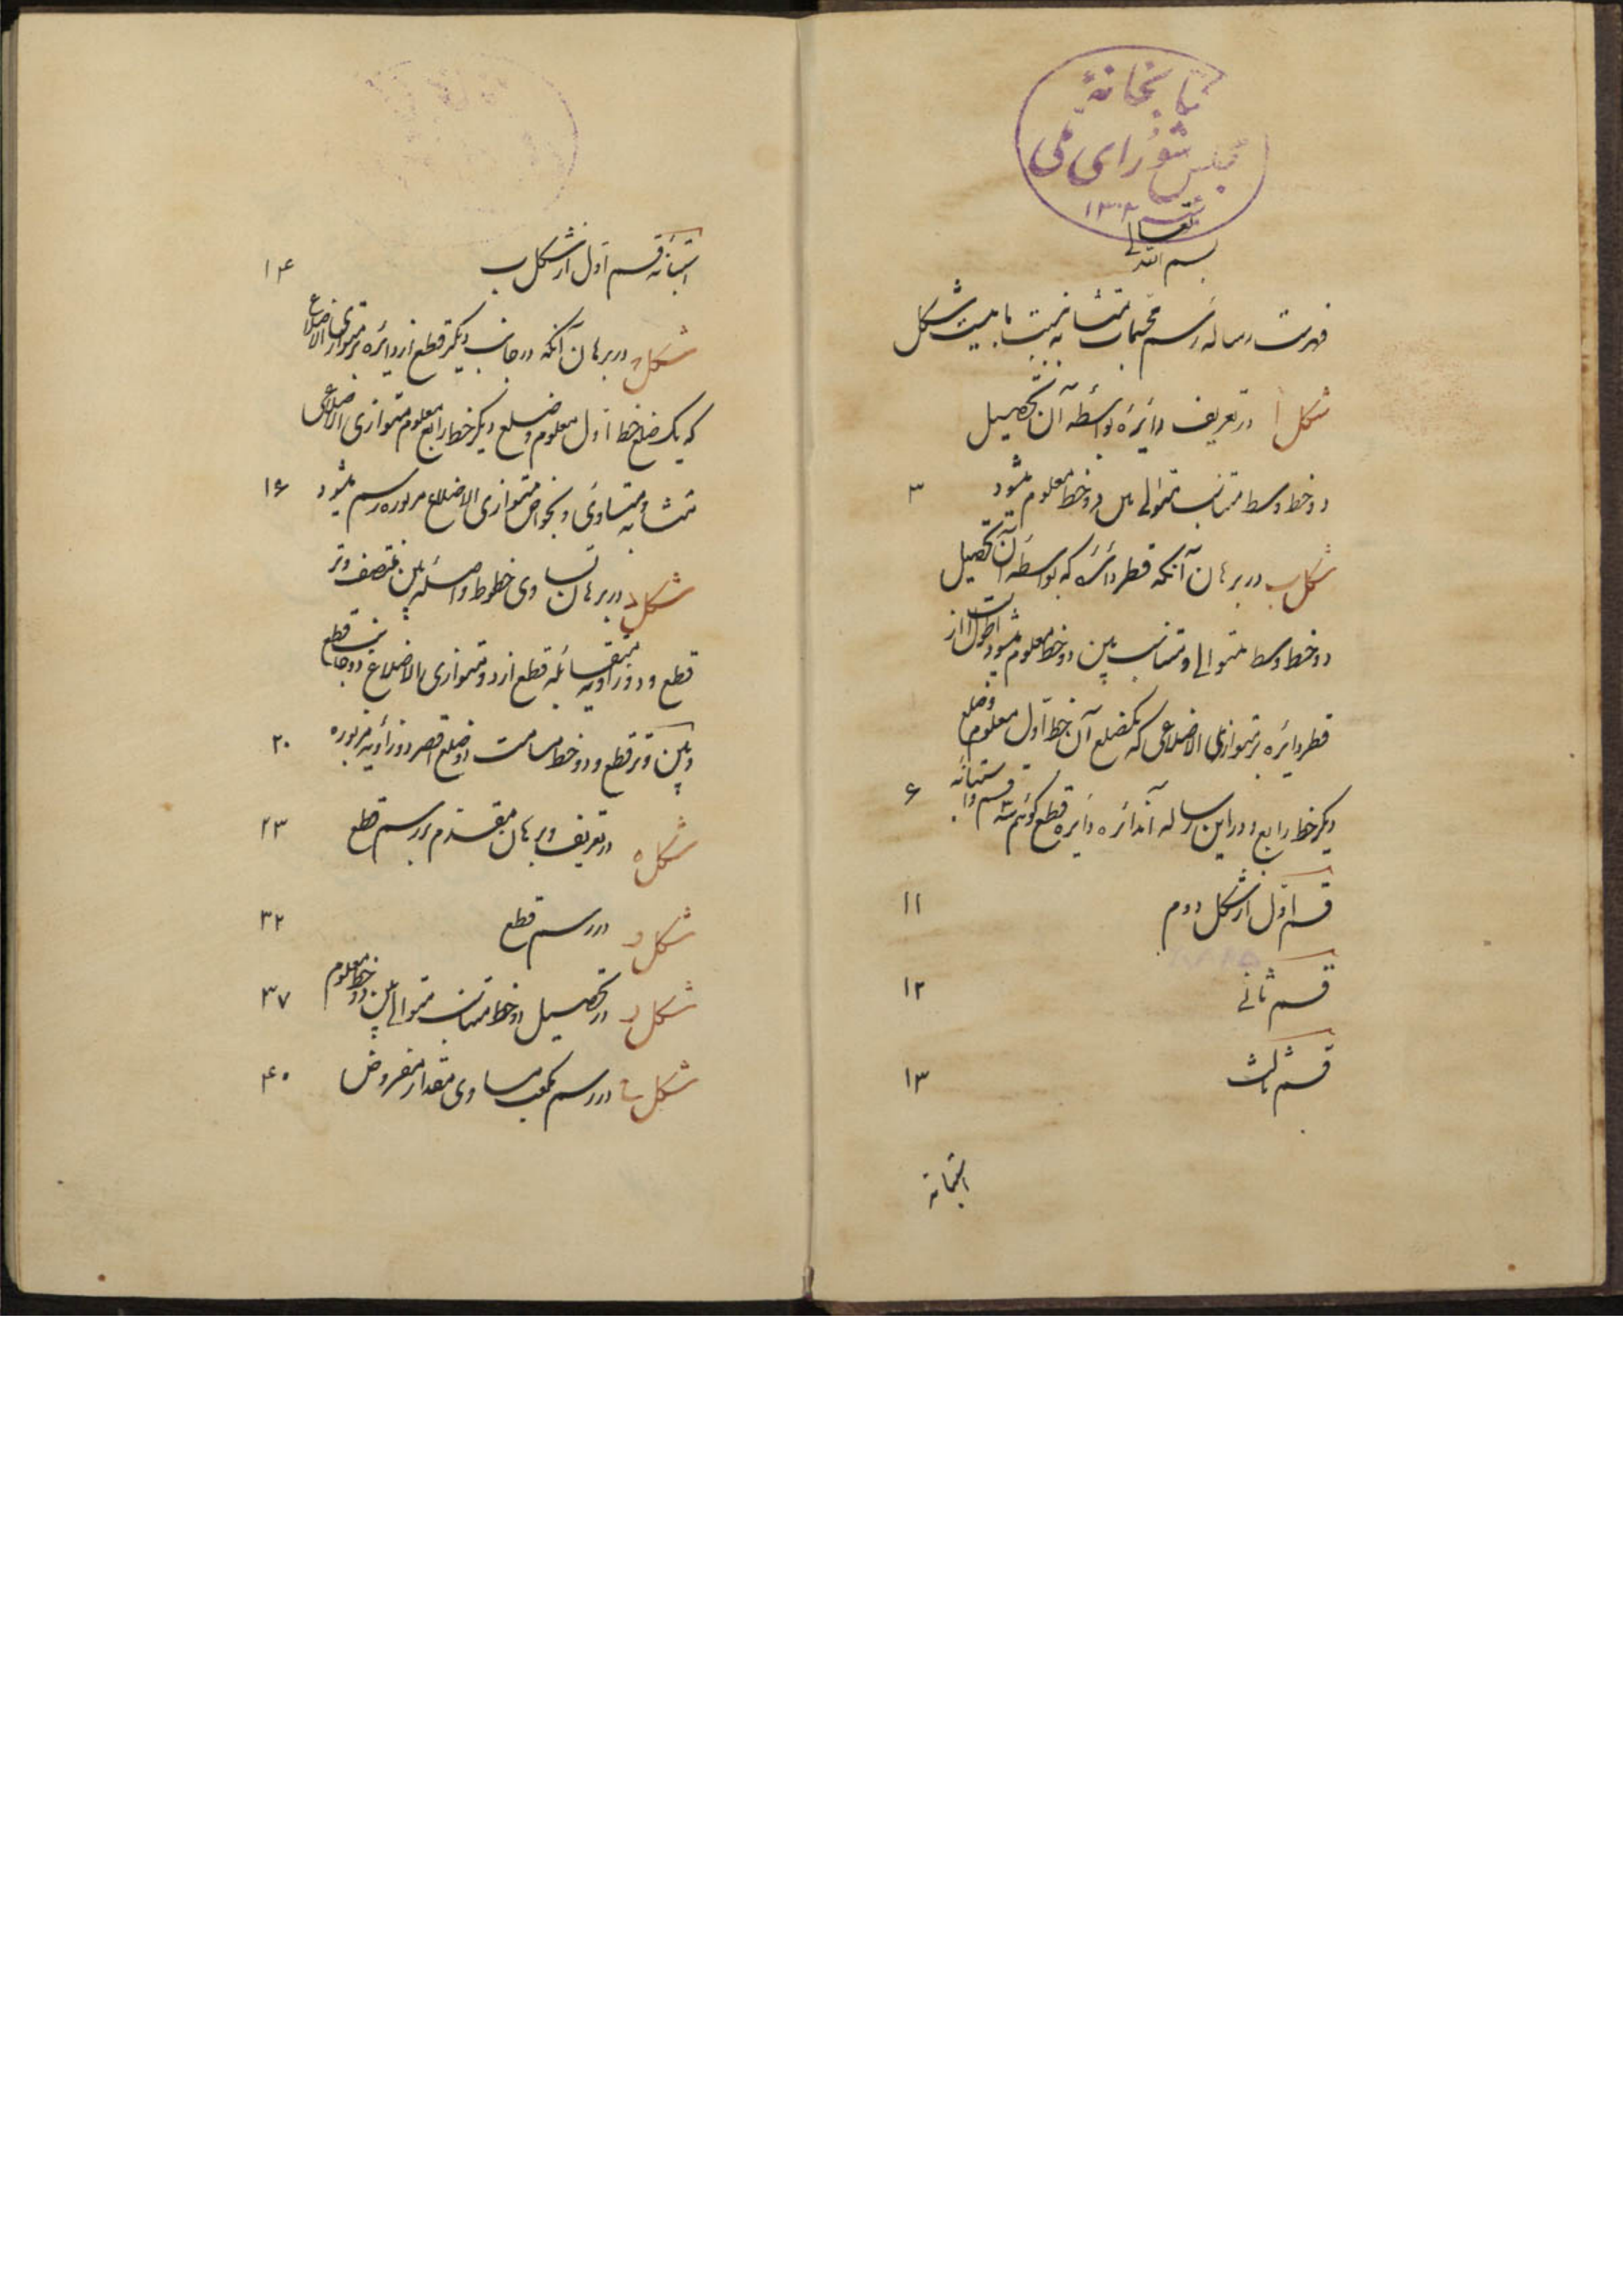 کتابخانهٔ
مجلس شورای ملی
۱۳۰۲
بسم الله تعالی
فهرست رساله رسم مجسمات متشابه نسبت با بیست شکل
شکل ا در تعریف دایرهٔ بواسطه آن تحصیل
دو خط وسط متناسب متوالی بین دو خط معلوم میشود ۳
شکل ب در برهان آنکه قطر دائرهٔ که بواسطه آن تحصیل
دو خط وسط متوالی و متناسب بین دو خط معلوم میشود اطول است از
قطر دایره بر متوازی الاضلاعی که یکضلع آن خط اول معلوم و ضلع
دیگر خط رابع و در این رساله آندائره دایره قطع گوئیم ۶
قسم اول از شکل دوم ۱۱
قسم ثانی ۱۲
قسم ثالث ۱۳
استبانه
استبانه قسم اول از شکل ب ۱۴
شکل ج در برهان آنکه در جانب دیگر قطع از دایره بر متوازی الاضلاع
که یک ضلع خط اول معلوم و ضلع دیگر خط رابع معلوم متوازی الاضلاعی
متشابه و متساوی و بخواص متوازی الاضلاع مزبوره رسم میشود ۱۶
شکل د در برهان تساوی خطوط واصله بین منتصف وتر
قطع و دو زاویه متقابله قطع از دو متوازی الاضلاع دو جانب قطع
و بین وتر قطع و دو خط مسامت دو ضلع اقصر دو زاویه مزبوره ۲۰
شکل ه در تعریف و برهان مقدم بر رسم قطع ۲۳
شکل و در رسم قطع ۳۲
شکل ز در تحصیل دو خط متناسب متوالی بین دو خط معلوم ۳۷
شکل ح در رسم مکعب مساوی مقدار مفروض ۴۰